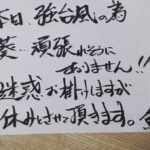 本日、強台風の為
菱…頑張れそうに
ありません!!
迷惑お掛けしますが
休みさせて頂きます。